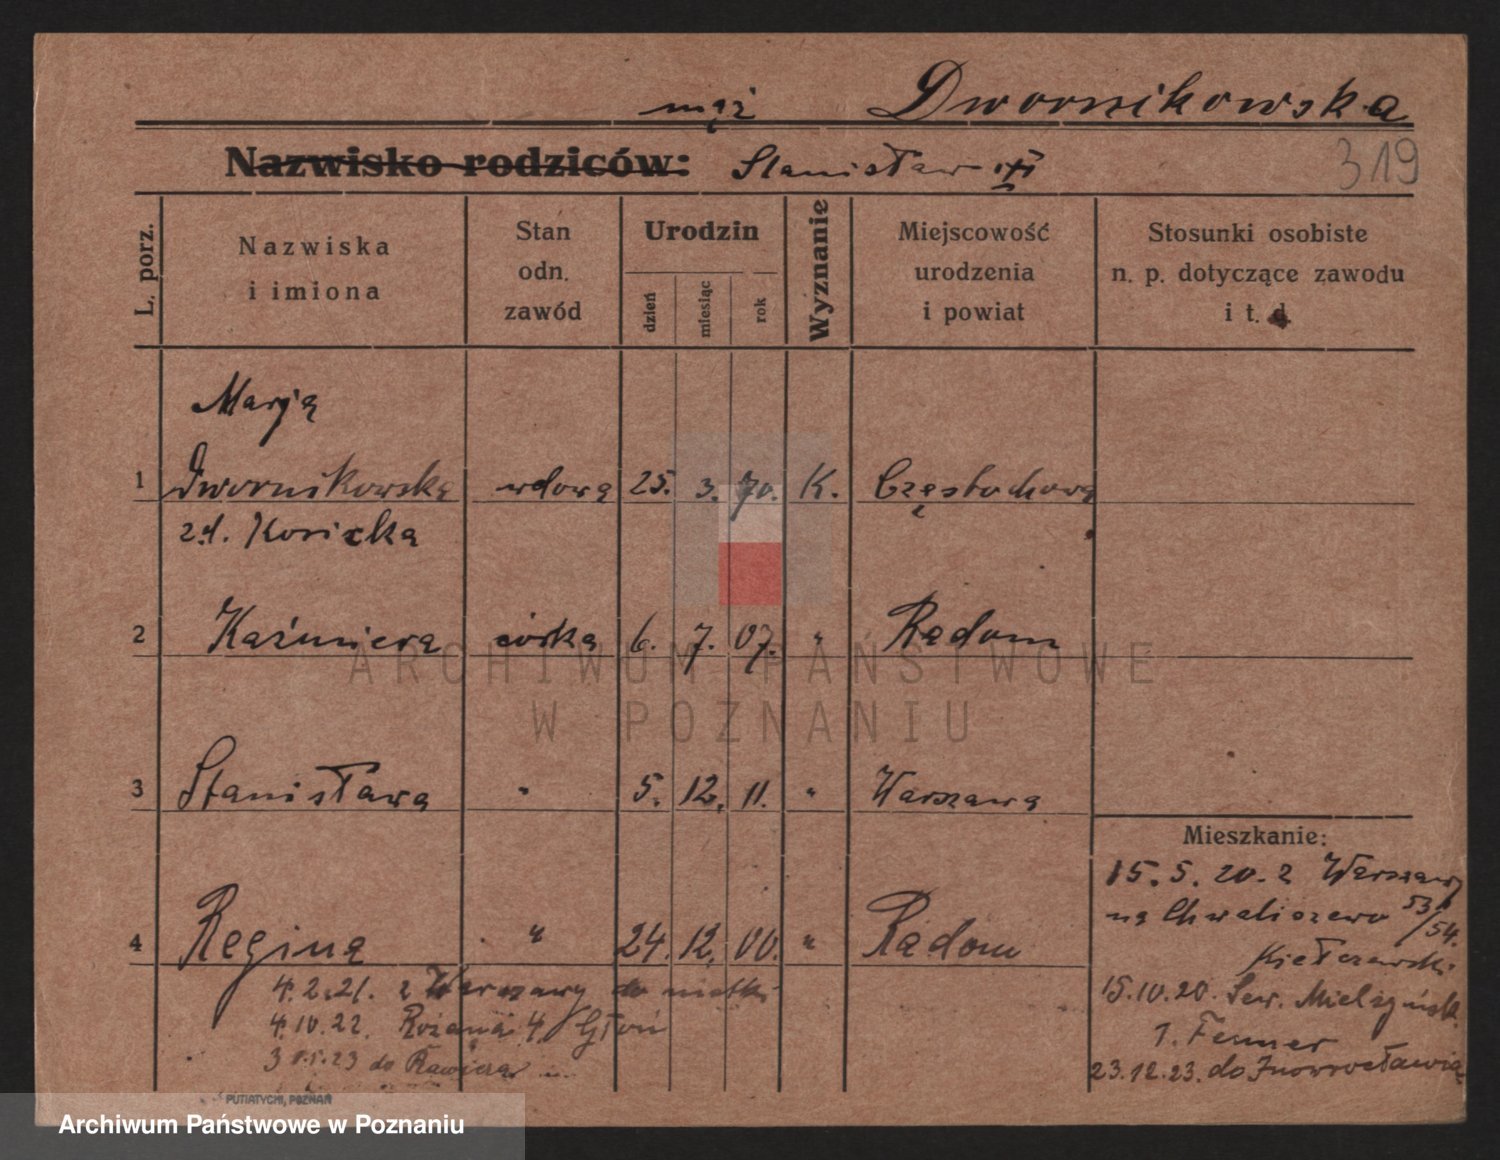 mąż Dwornikowska
Nazwisko rodziców: Stanisław
319
L. porz.
Nazwiska
i imiona
Stan
odn.
zawód
Urodzin
dzień
miesiąc
rok
Wyznanie
Miejscowość
urodzenia
i powiat
Stosunki osobiste
n. p. dotyczące zawodu
i t. d.
Marją
1 Dwornikowska wdowa 25. 3. 70. K. Częstochowa
zd.
2 Kaźmiera córka 6. 7. 07. " Radom
ARCHIWUM PAŃSTWOWE
W POZNANIU
3 Stanisława " 5. 12. 11. " Warszawa
Mieszkanie:
15. 5. 20. z Warszawy
na Chwaliszewo 53/54.
4 Regina " 24. 12. 00. " Radom
4.2.21. z Warszawy do matki
15.10.20. Sew. Mielżyńsk.
4.10.22. Różana 4
23.12.23. do Inowrocławia
do Rawicza
PUTIATYCKI, POZNAŃ
Archiwum Państwowe w Poznaniu